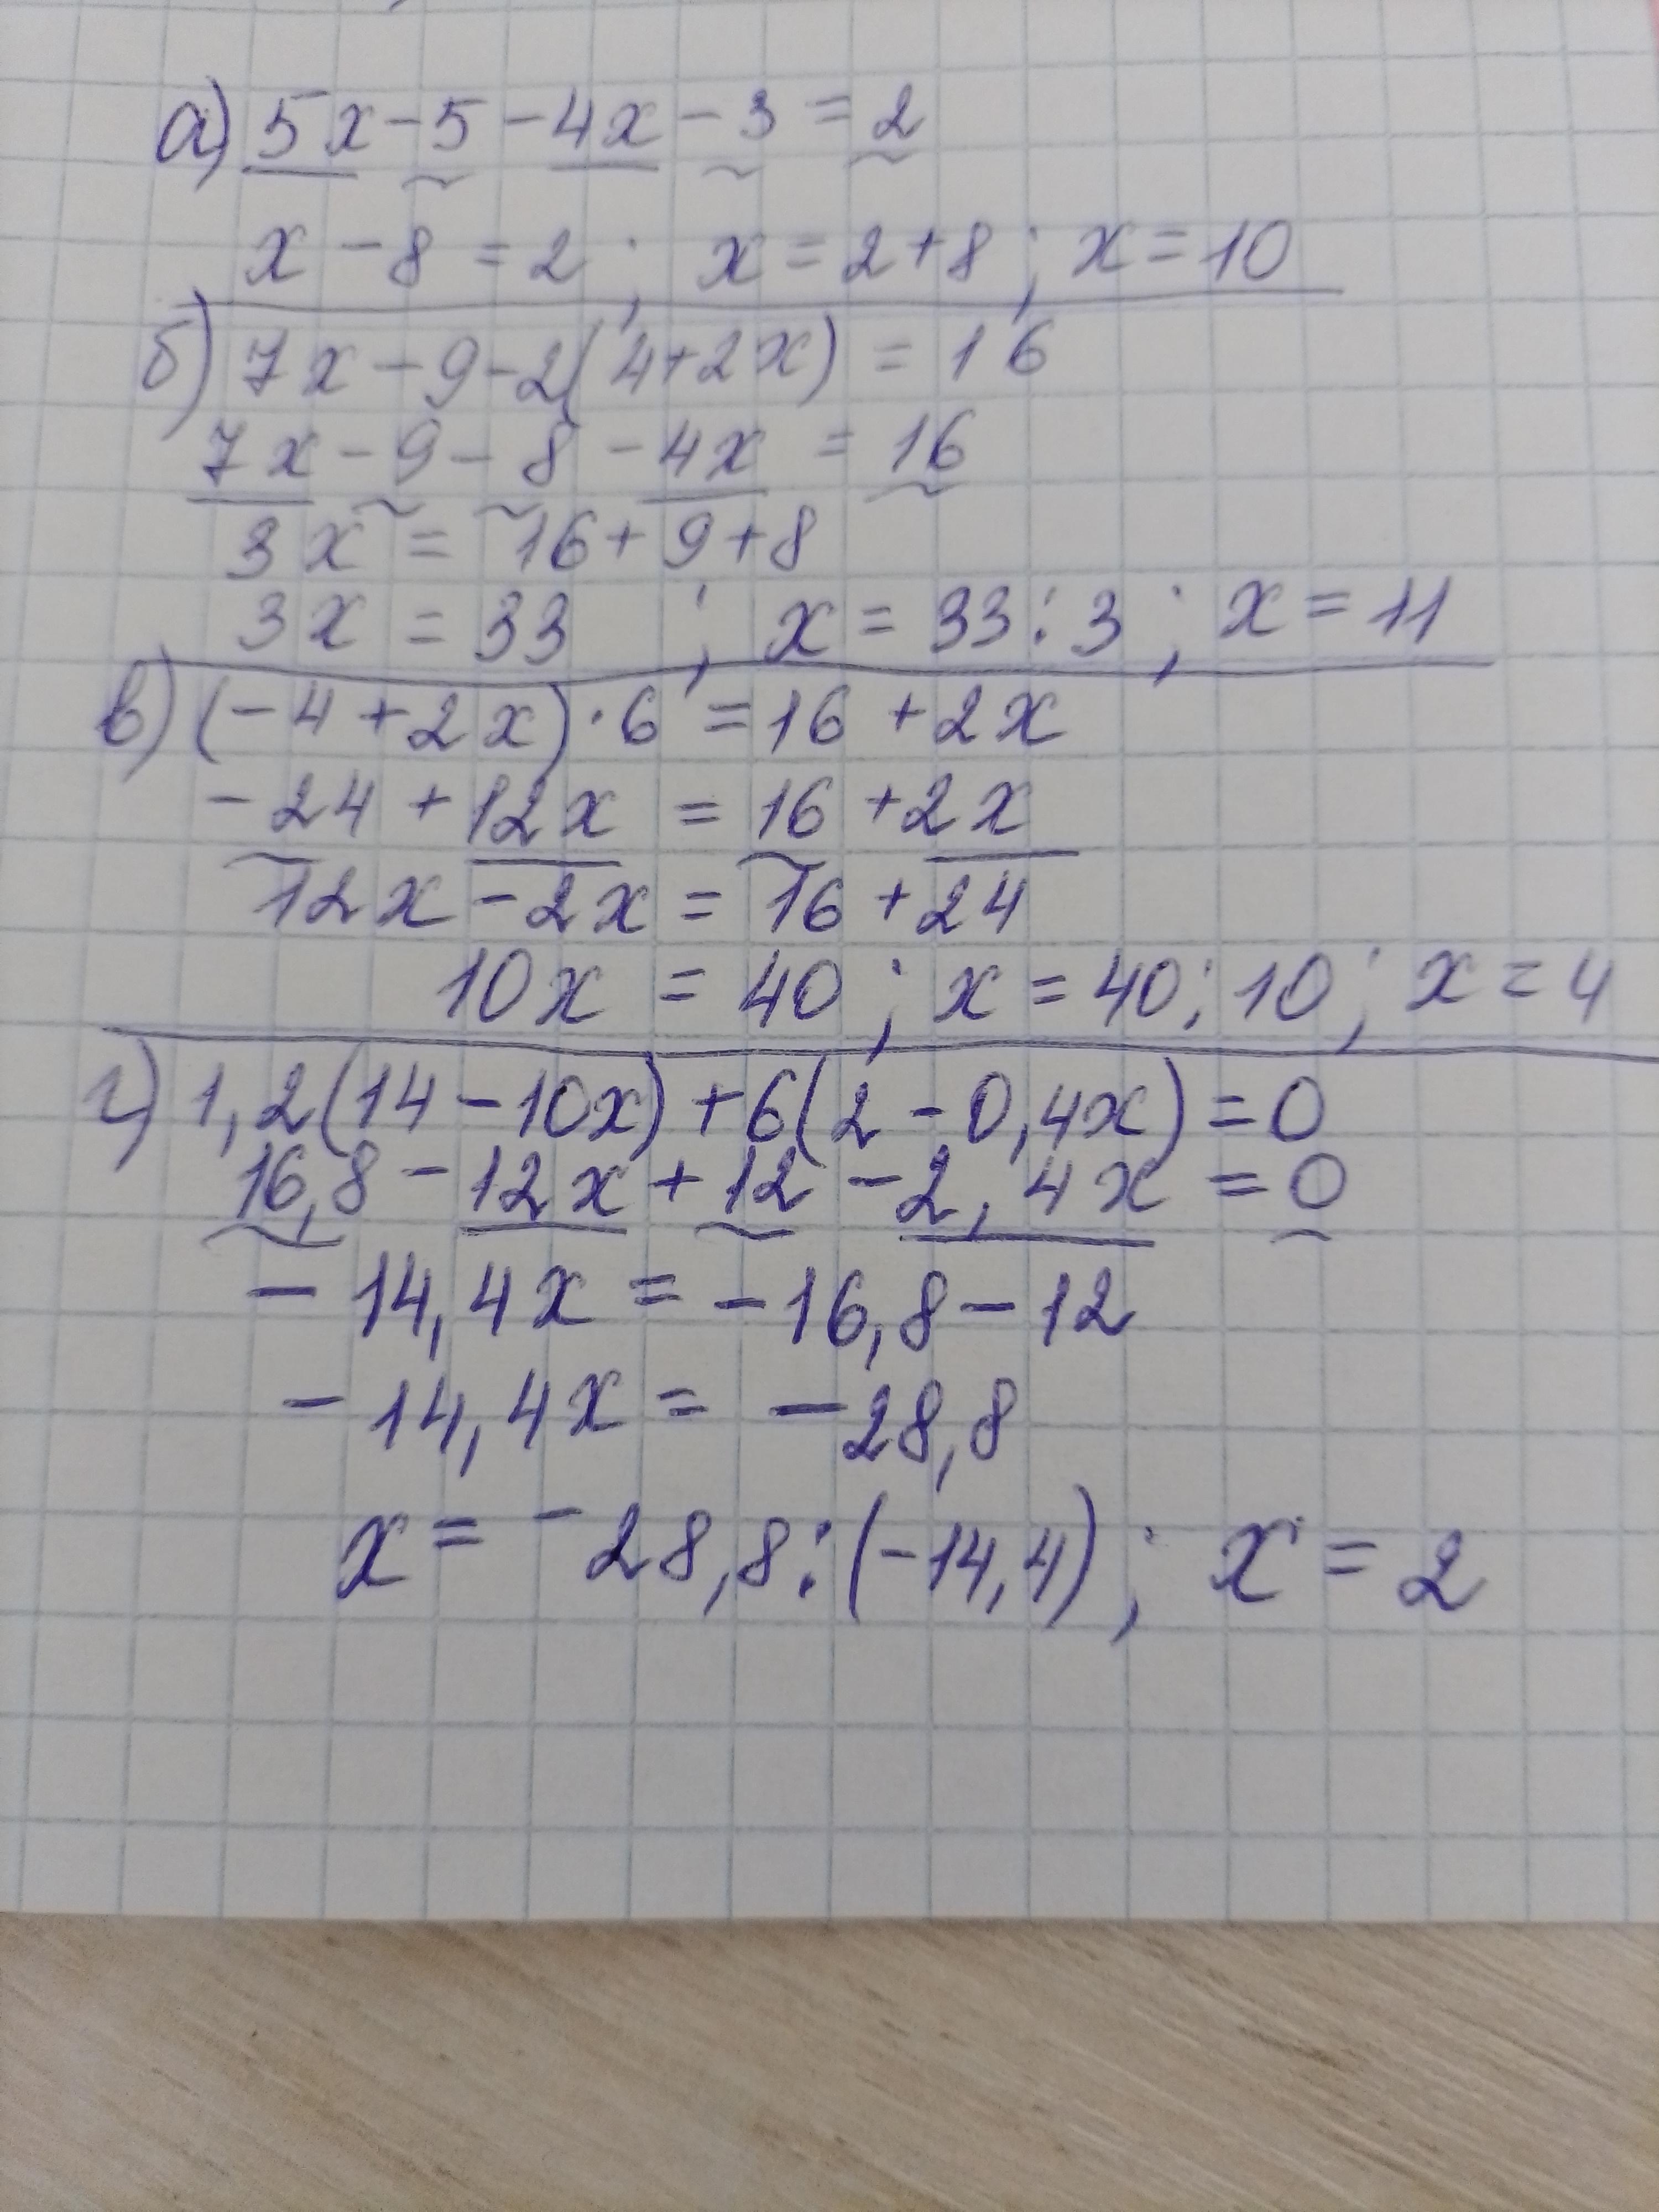 а) 5x - 5 - 4x - 3 = 2
x - 8 = 2 ; x = 2 + 8 ; x = 10
б) 7x - 9 - 2(4 + 2x) = 16
7x - 9 - 8 - 4x = 16
3x = 16 + 9 + 8
3x = 33 ; x = 33 : 3 ; x = 11
в) (-4 + 2x) · 6 = 16 + 2x
-24 + 12x = 16 + 2x
12x - 2x = 16 + 24
10x = 40 ; x = 40 : 10 ; x = 4
г) 1,2(14 - 10x) + 6(2 - 0,4x) = 0
16,8 - 12x + 12 - 2,4x = 0
- 14,4x = - 16,8 - 12
- 14,4x = - 28,8
x = - 28,8 : (-14,4) ; x = 2